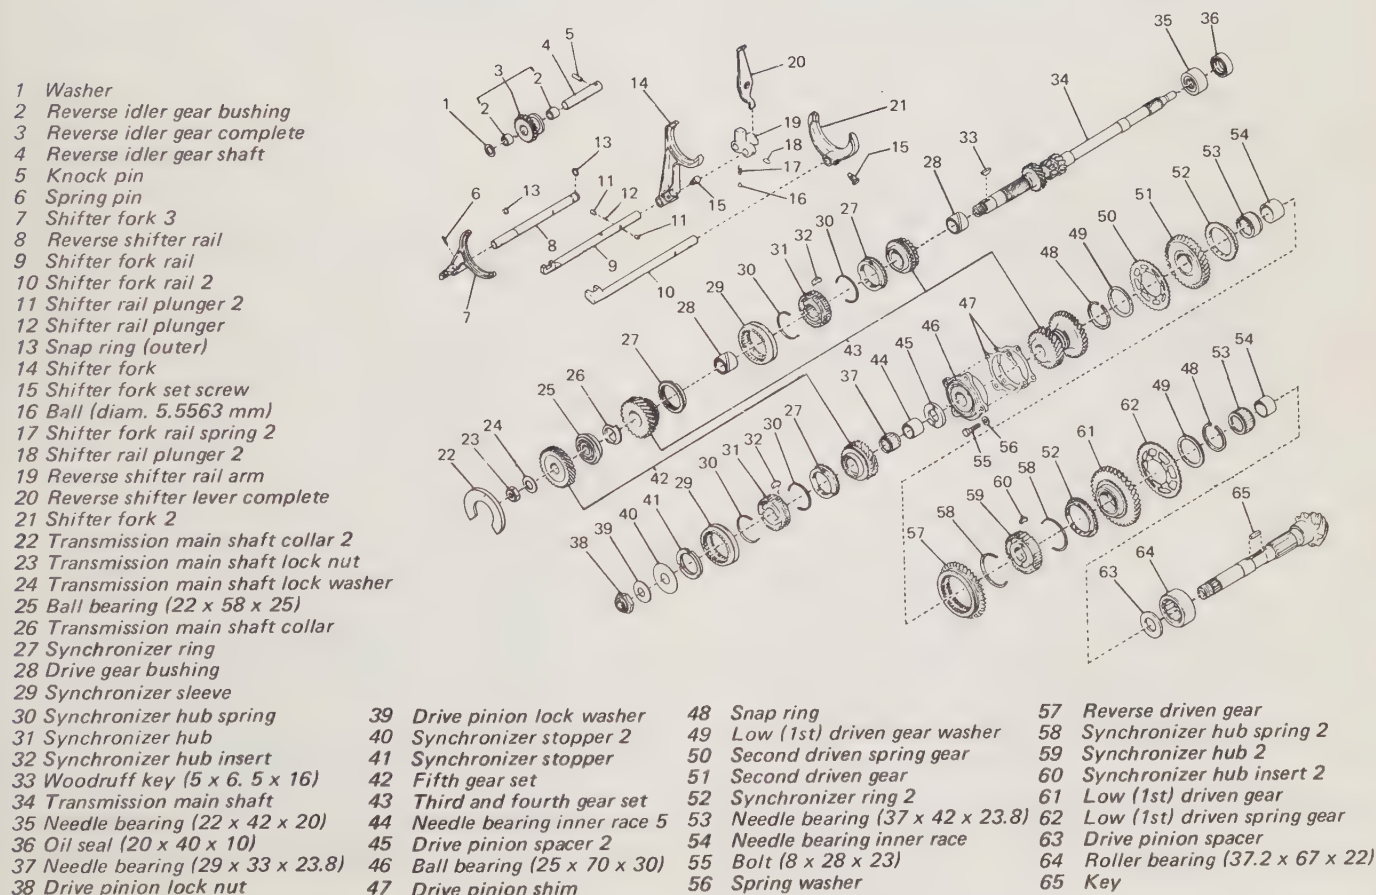 1 Washer
2 Reverse idler gear bushing
3 Reverse idler gear complete
4 Reverse idler gear shaft
5 Knock pin
6 Spring pin
7 Shifter fork 3
8 Reverse shifter rail
9 Shifter fork rail
10 Shifter fork rail 2
11 Shifter rail plunger 2
12 Shifter rail plunger
13 Snap ring (outer)
14 Shifter fork
15 Shifter fork set screw
16 Ball (diam. 5.5563 mm)
17 Shifter fork rail spring 2
18 Shifter rail plunger 2
19 Reverse shifter rail arm
20 Reverse shifter lever complete
21 Shifter fork 2
22 Transmission main shaft collar 2
23 Transmission main shaft lock nut
24 Transmission main shaft lock washer
25 Ball bearing (22 x 58 x 25)
26 Transmission main shaft collar
27 Synchronizer ring
28 Drive gear bushing
29 Synchronizer sleeve
30 Synchronizer hub spring
31 Synchronizer hub
32 Synchronizer hub insert
33 Woodruff key (5 x 6. 5 x 16)
34 Transmission main shaft
35 Needle bearing (22 x 42 x 20)
36 Oil seal (20 x 40 x 10)
37 Needle bearing (29 x 33 x 23.8)
38 Drive pinion lock nut
39 Drive pinion lock washer
40 Synchronizer stopper 2
41 Synchronizer stopper
42 Fifth gear set
43 Third and fourth gear set
44 Needle bearing inner race 5
45 Drive pinion spacer 2
46 Ball bearing (25 x 70 x 30)
47 Drive pinion shim
48 Snap ring
49 Low (1st) driven gear washer
50 Second driven spring gear
51 Second driven gear
52 Synchronizer ring 2
53 Needle bearing (37 x 42 x 23.8)
54 Needle bearing inner race
55 Bolt (8 x 28 x 23)
56 Spring washer
57 Reverse driven gear
58 Synchronizer hub spring 2
59 Synchronizer hub 2
60 Synchronizer hub insert 2
61 Low (1st) driven gear
62 Low (1st) driven spring gear
63 Drive pinion spacer
64 Roller bearing (37.2 x 67 x 22)
65 Key
35
36
5
4
3
2
2
1
20
14
34
21
19
18
17
16
15
15
13
13
6
11
12
11
8
9
10
7
33
28
54
53
52
51
50
49
48
27
30
32
31
30
29
28
27
26
25
24
23
22
47
46
45
44
43
37
42
27
32
31
30
30
29
41
40
39
38
56
55
54
53
48
49
62
61
52
58
60
59
58
57
65
64
63